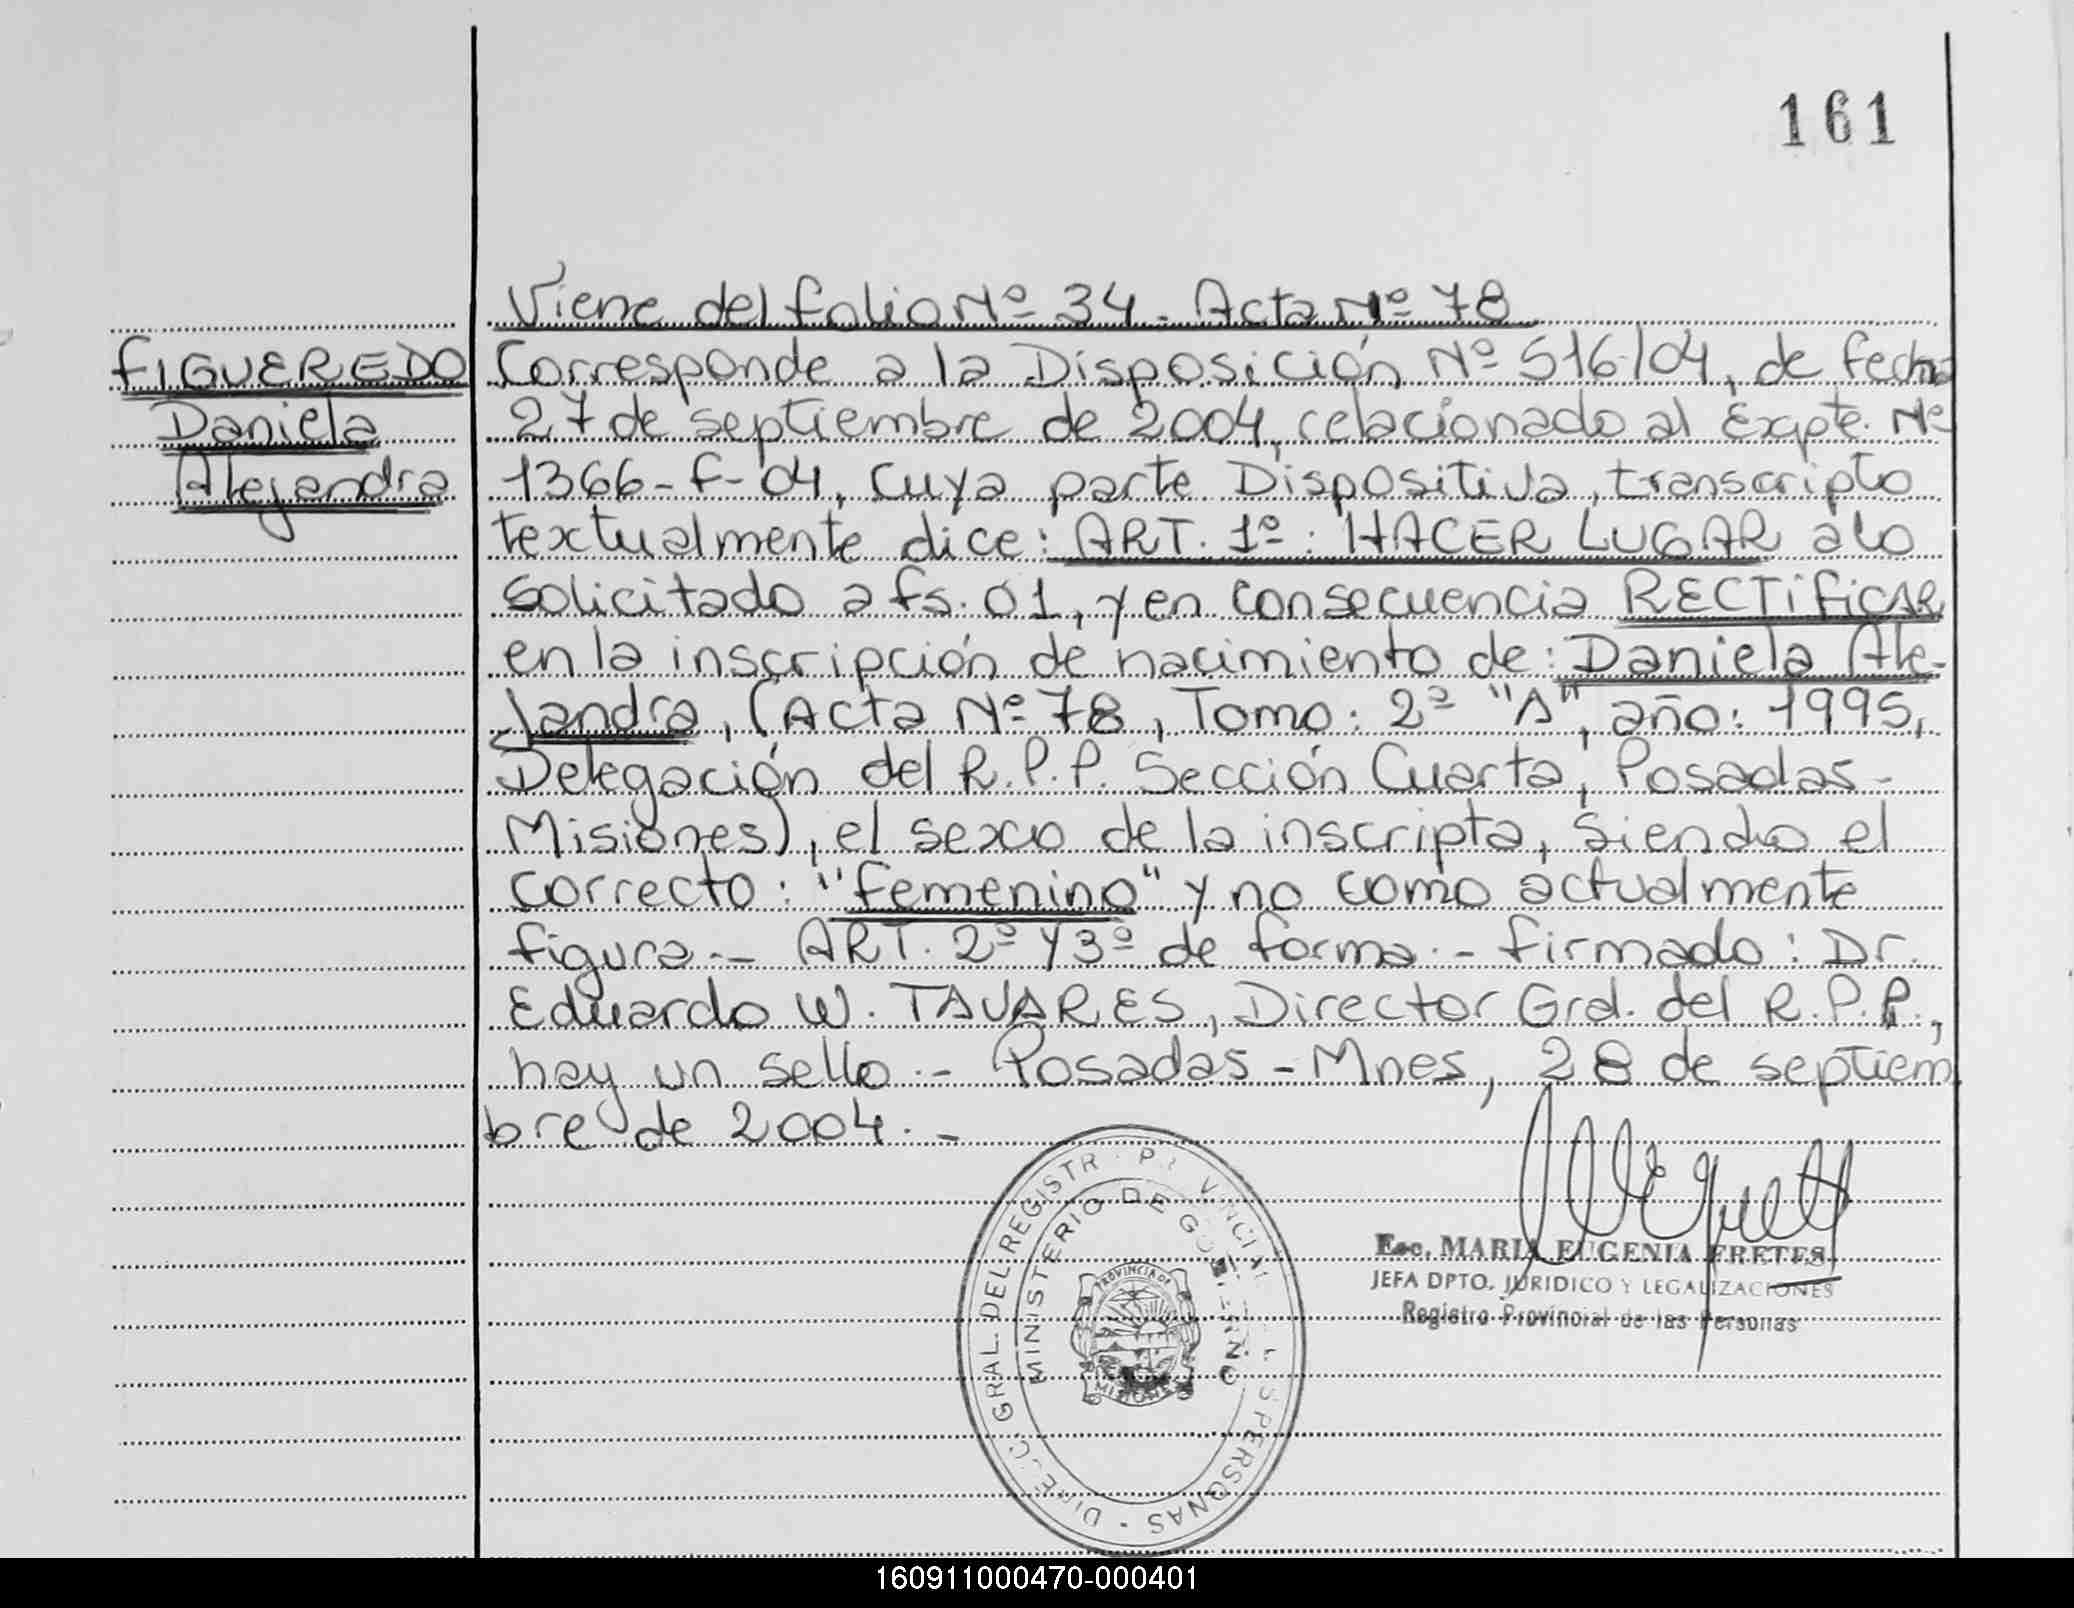 161
Viene del folio Nº 34. Acta Nº 78
FIGUEREDO
Daniela
Alejandra
Corresponde a la Disposición Nº 516/04, de fecha
27 de septiembre de 2004, relacionado al Expte. Nº
1366-F-04, cuya parte Dispositiva, transcripto
textualmente dice: ART. 1º: HACER LUGAR a lo
solicitado a fs. 01, y en consecuencia RECTIFICAR
en la inscripción de nacimiento de: Daniela Ale-
jandra, (Acta Nº 78, Tomo: 2º "A", año: 1995,
Delegación del R.P.P. Sección Cuarta, Posadas-
Misiones), el sexo de la inscripta, siendo el
correcto: "femenino" y no como actualmente
figura.- ART. 2º y 3º de forma.- Firmado: Dr.
Eduardo W. TAVARES, Director Gral. del R.P.P.,
hay un sello.- Posadas-Mnes, 28 de septiem
bre de 2004.-
Esc. MARIA EUGENIA FRETES
JEFA DPTO. JURIDICO Y LEGALIZACIONES
Registro Provincial de las Personas
MINISTERIO DE GOBIERNO
PROVINCIA DE
MISIONES
160911000470-000401